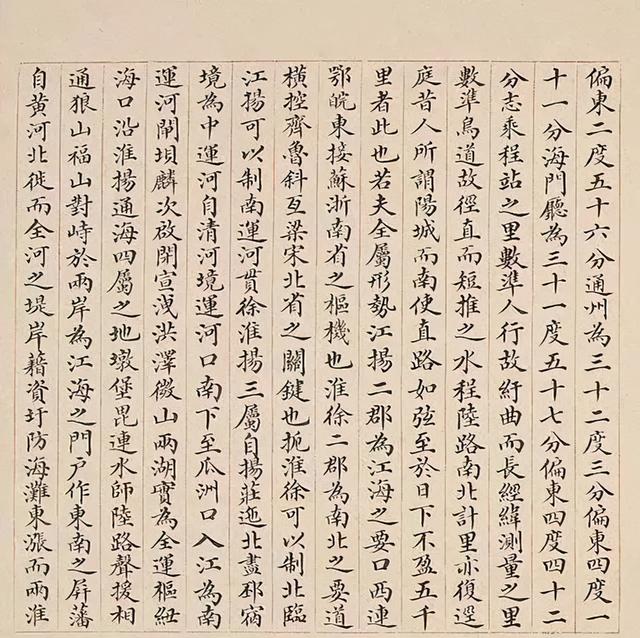 偏東二度五十六分通州為三十二度三分偏東四度一
十一分海門廳為三十一度五十七分偏東四度四十二
分志乘程站之里數準人行故紆曲而長經緯測量之里
數準鳥道故徑直而短推之水程陸路南北計里亦復逕
庭昔人所謂陽城而南使直路如弦至於日下不盈五千
里者此也若夫全屬形勢江揚二郡為江海之要口西連
鄂皖東接蘇浙南省之樞機也淮徐二郡為南北之要道
橫控齊魯斜亙梁宋北省之關鍵也扼淮徐可以制北臨
江揚可以制南運河貫徐淮揚三屬自揚莊迤北盡邳宿
境為中運河自清河境運河口南下至瓜洲口入江為南
運河閘壩麟次啟閉宣洩洪澤微山兩湖實為全運樞紐
海口沿淮揚通海四屬之地墩堡毘連水師陸路聲援相
通狼山福山對峙於兩岸為江海之門戶作東南之屏藩
自黃河北徙而全河之堤岸藉資圩防海灘東漲而兩淮